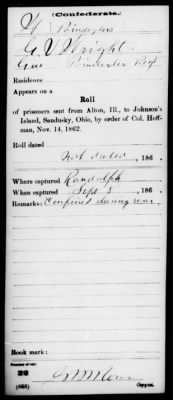 (Confederate.)
Poindexter
G. V. Wright
Poindexter Regt
Residence
Appears on a
Roll
of prisoners sent from Alton, Ill., to Johnson's
Island, Sandusky, Ohio, by order of Col. Hoff-
man, Nov. 14, 1862.
Roll dated
Not dated, 186 .
Where captured Randolph
When captured Sept 8, 186 .
Remarks: Confined during war
Book mark:
Number of roll:
32
(653)
Copyist.